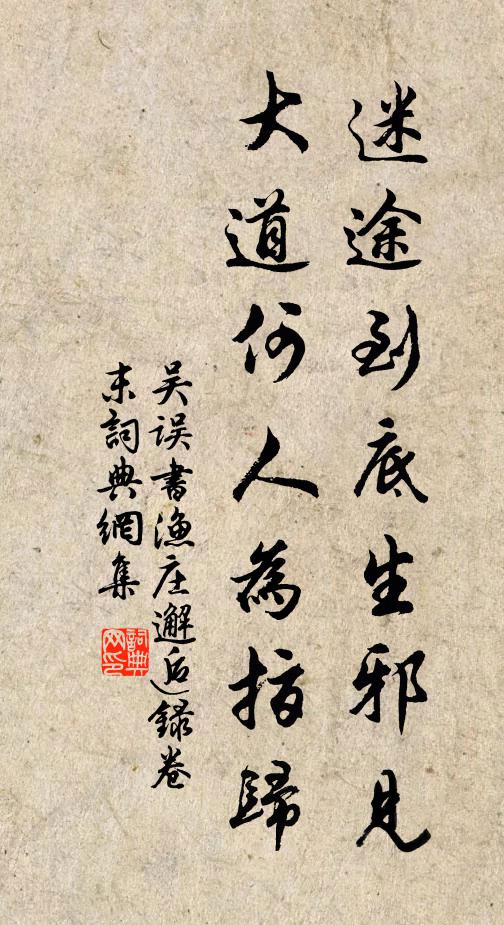 迷途到底生邪見
大道何人為指歸
吴误書漁庄邂逅録卷
末詞典網集
詞典網印